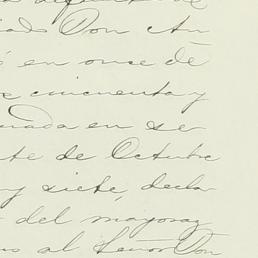 Don An
en once de
cincuenta y
en se
te de Octubre
y siete, decla
del mayoraz
al Señor Don